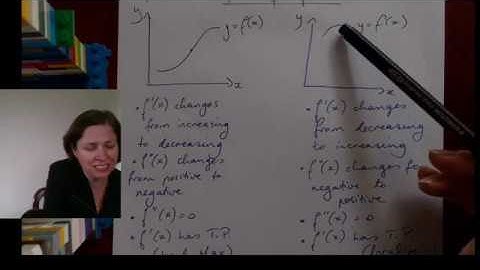 y
y=f(x)
x
• f'(x) changes
from increasing
to decreasing
• f"(x) changes
from positive to
negative
• f"(x)=0
• f'(x) has T.P.
y
y=f(x)
x
• f'(x) changes
from decreasing
to increasing
• f"(x) changes
negative to
positive
• f"(x)=0
• f'(x) has T.P.